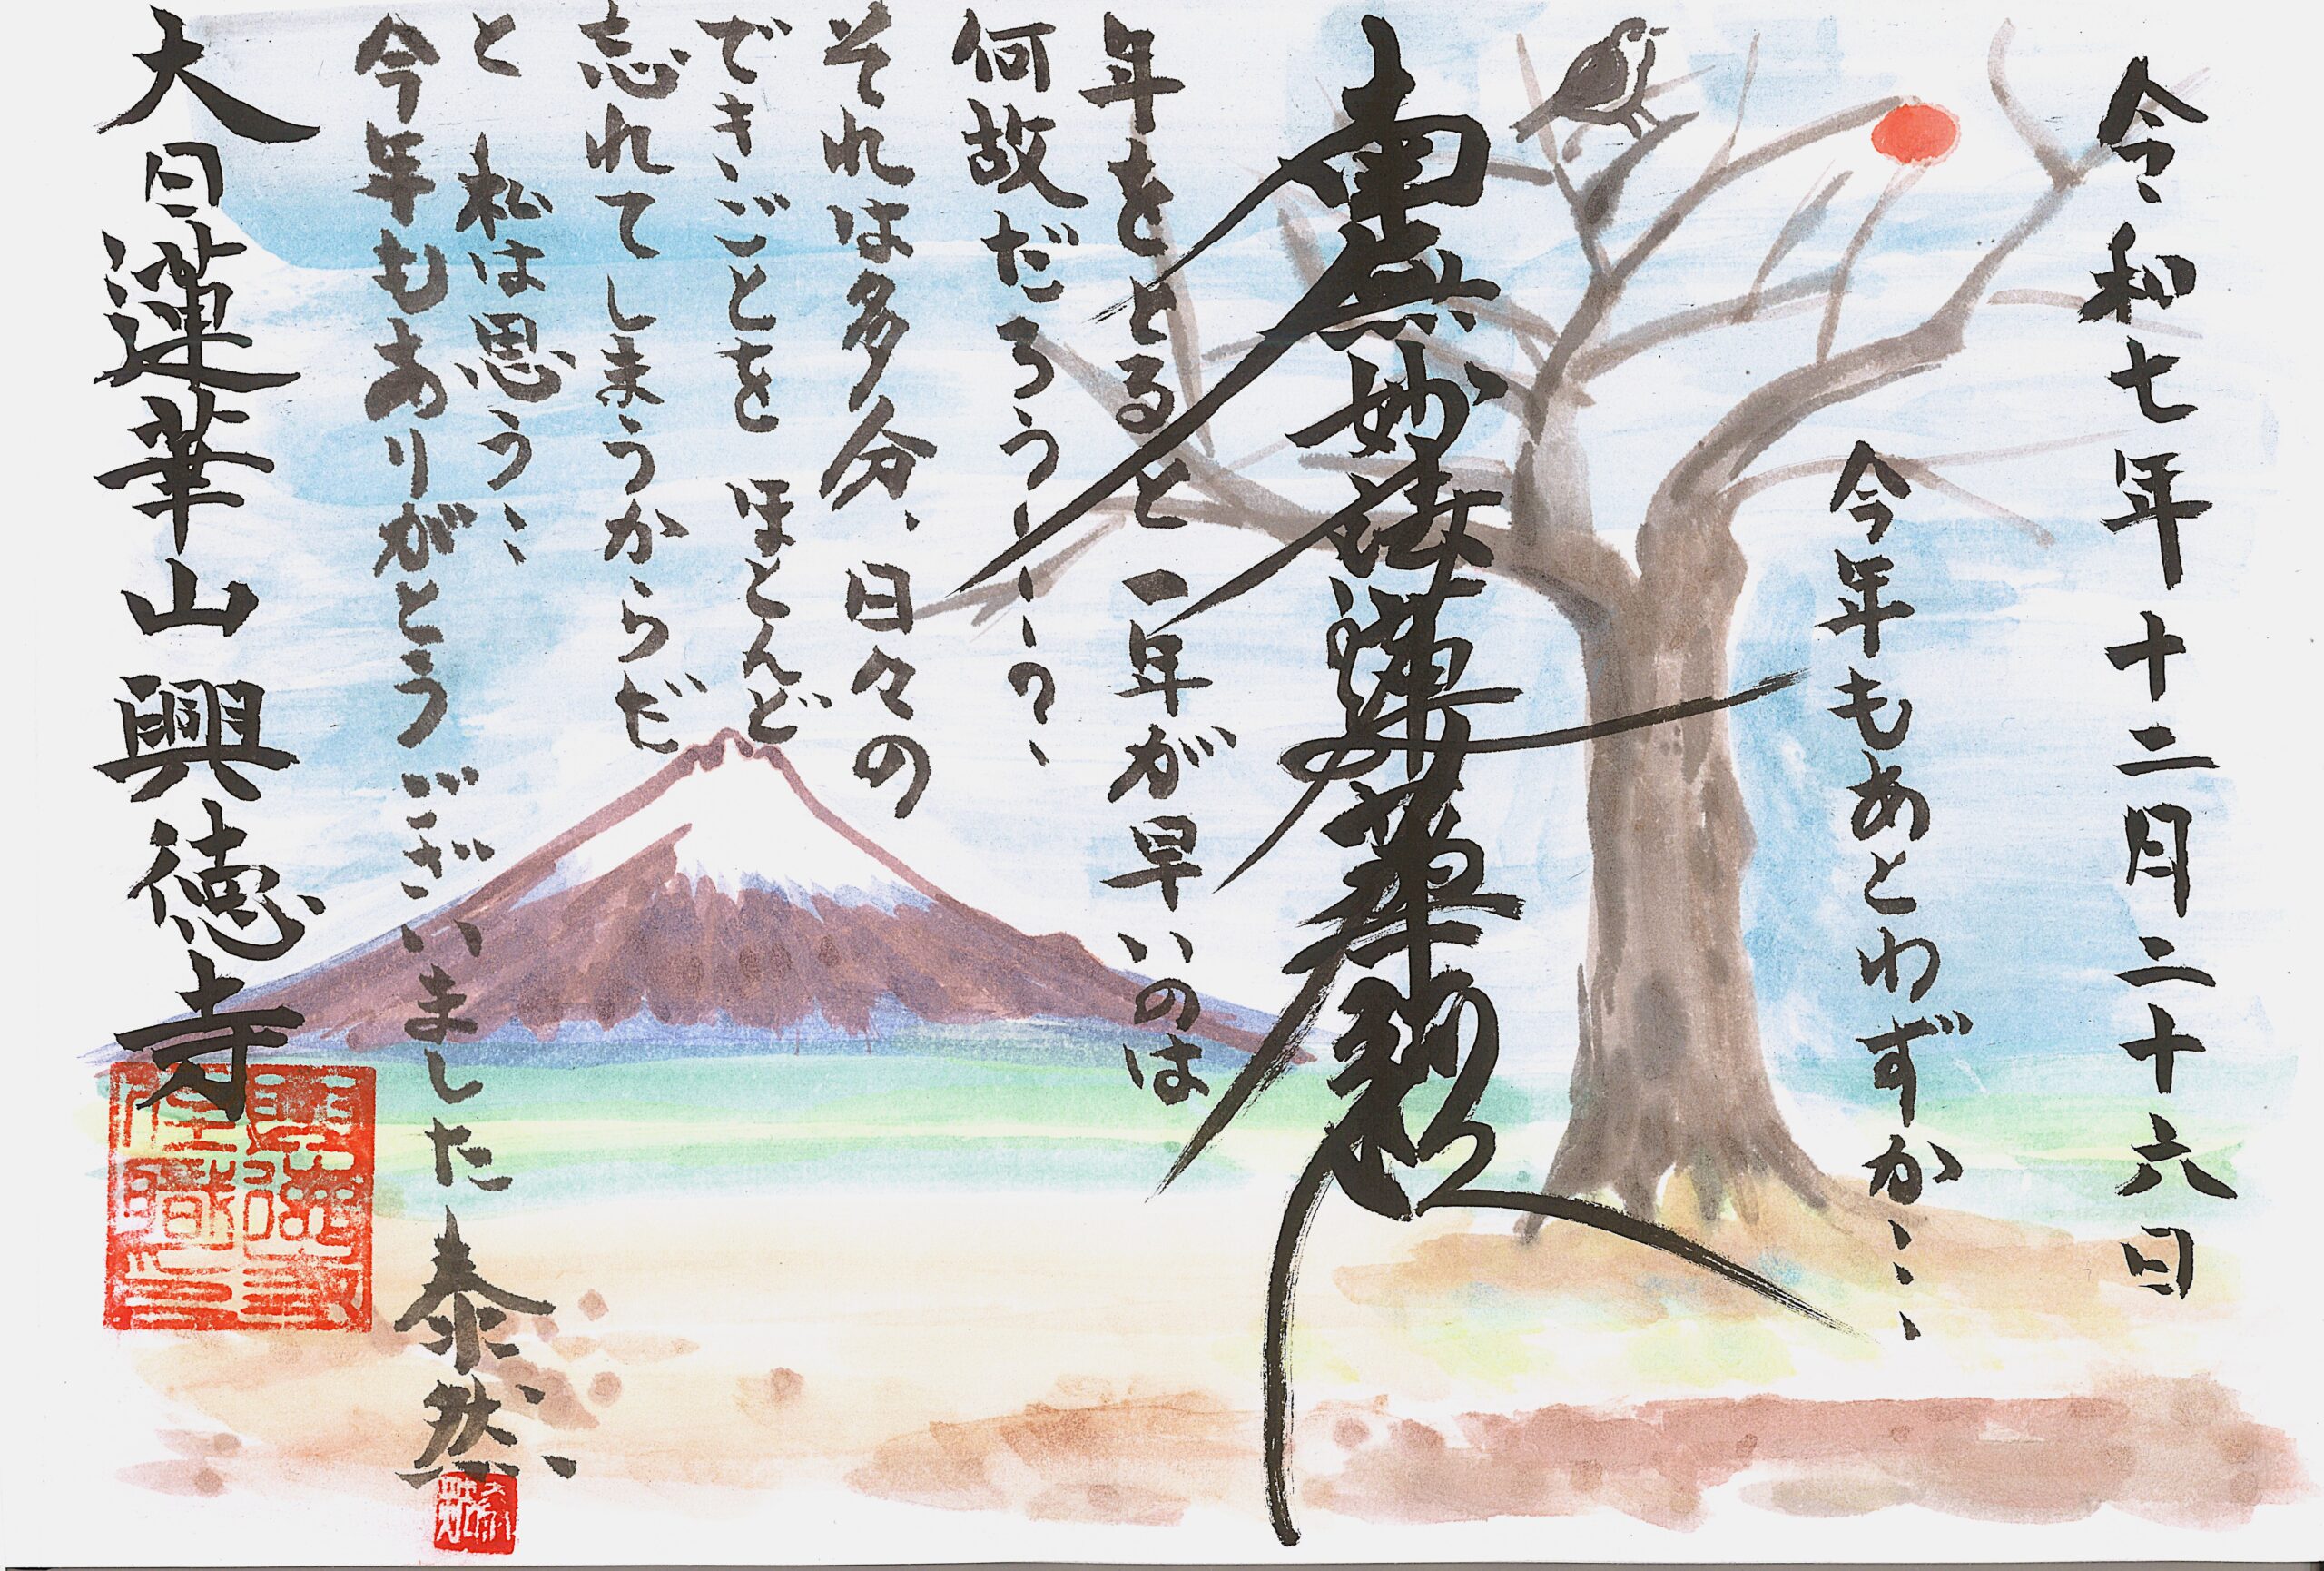 令和七年十二月二十六日
今年もあとわずか…
南無妙法蓮華経
年をとると一年が早いのは
何故だろうー！？、
それは多分、日々の
できごとを ほとんど
忘れてしまうからだ
と 私は思う…
今年もありがとうございました 泰然
大日蓮華山 興徳寺
興徳寺
住職印